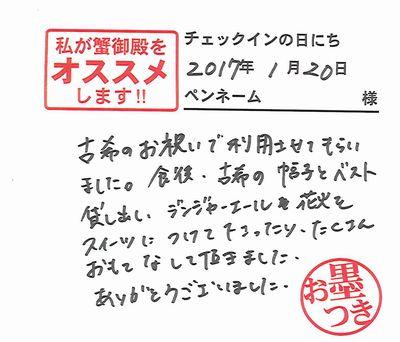 私が蟹御殿を
オススメ
します!!
チェックインの日にち
2017年 1月20日
ペンネーム 様
古希のお祝いで利用させてもらい
ました。食後、古希の帽子とベスト
貸し出し、ジンジャーエール、花火を
スイーツにつけて下さったり、たくさん
おもてなしして頂きました。
ありがとうございました。
お墨つき